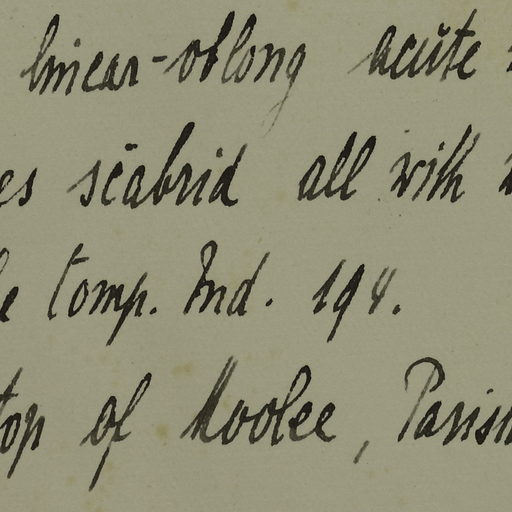 linear-oblong acute
es scabrid all with
e Comp. Ind. 194.
top of Moolee, Paris